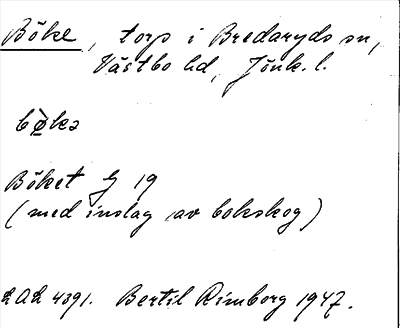 Böke, torp i Bredaryds sn,
Västbo hd, Jönk. l.
bø̀kə
Böket G 19
(med inslag av bokskog)
LAL 4391. Bertil Rimborg 1947.